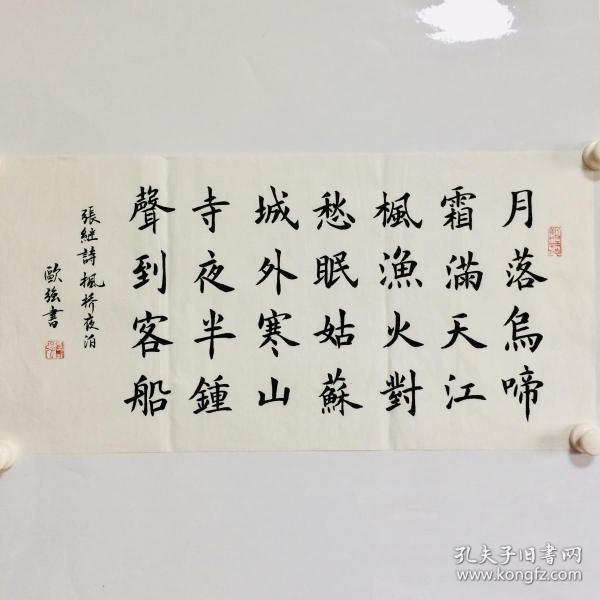 月落烏啼
霜滿天江
楓漁火對
愁眠姑蘇
城外寒山
寺夜半鍾
聲到客船
張继詩楓桥夜泊
歐强書
孔夫子旧书网
www.kongfz.com